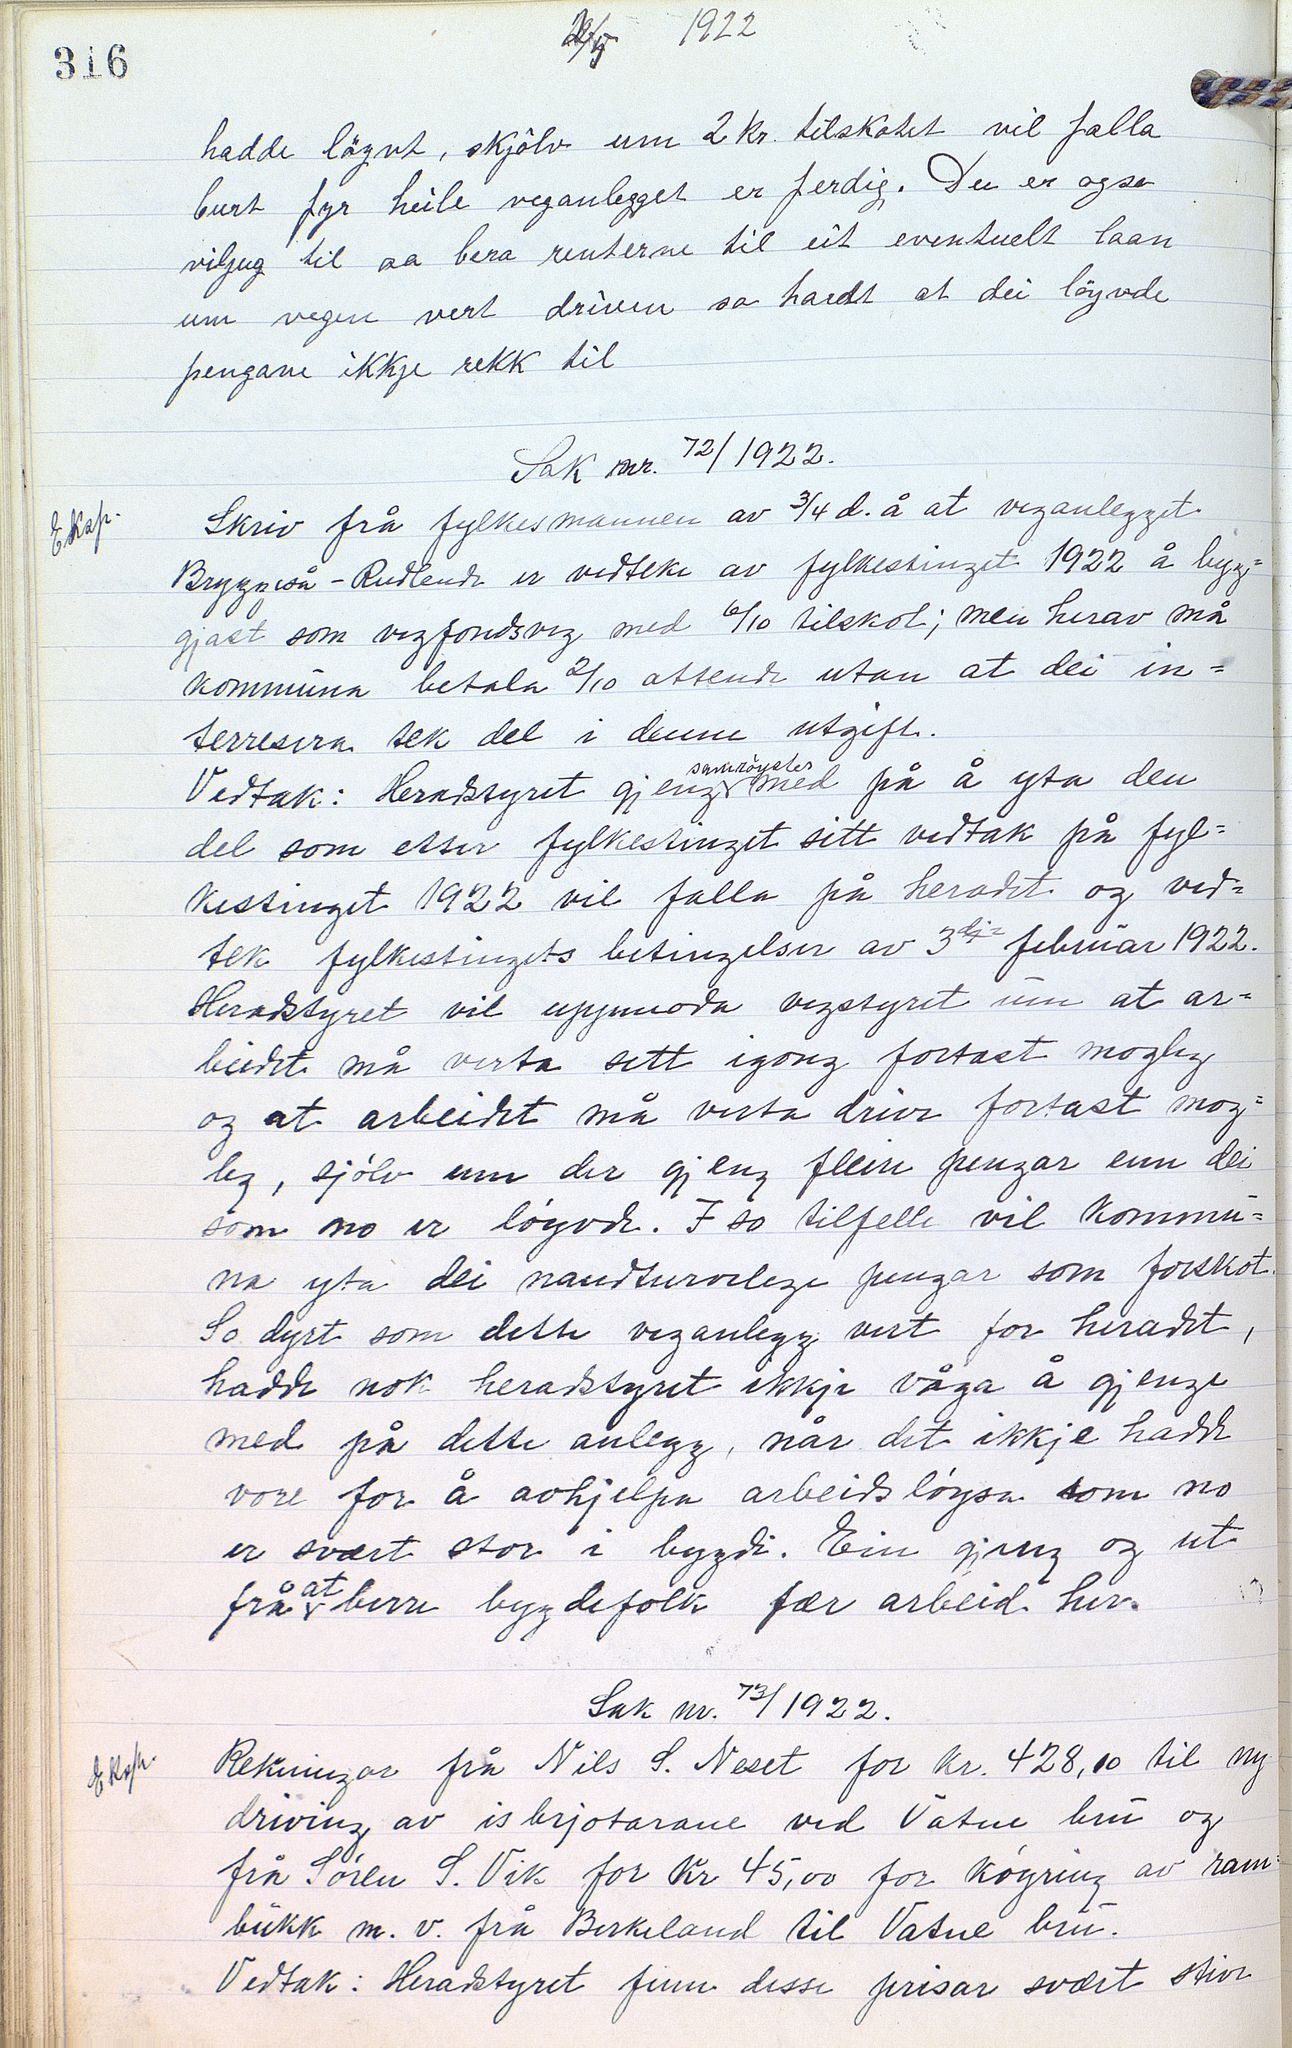 316
1922
hadde löyvt, skjölv um 2 kr. tilskotet vil falla
burt fyr heile veganlegget er ferdig. Dei er ogso
viljug til aa bera renterne til eit eventuelt laan
um vegen vert driven so hardt at dei löyvde
pengane ikkje rekk til
Sak nr. 72/1922.
Eksp.
Skriv frå fylkesmannen av 3/4 d. å at veganlegget
Bryggeså - Rudlende er vedteke av fylkestinget 1922 å byg-
gjast som vegfondsveg med 6/10 tilskot; men herav må
kommuna betala 2/10 attende utan at dei in-
terresera tek del i denne utgift.
Vedtak: Heradstyret gjeng samröystes med på å yta den
del som etter fylkestinget sitt vedtak på fyl-
kestinget 1922 vil falla på heradet og ved-
tek fylkestingets betingelser av 3dje februar 1922.
Heradstyret vil uppmoda vegstyret um at ar-
beidet må verta sett igong fortast mogleg
og at arbeidet må verta drive fortast mog-
leg, sjölv um der gjeng fleire pengar enn dei
som no er löyvde. I so tilfelle vil kommu-
na yta dei naudturvelege pengar som forskot.
So dyrt som dette veganlegg vert for heradet,
hadde nok heradstyret ikkje våga å gjenge
med på dette anlegg, når det ikkje hadde
vore for å avhjelpa arbeidslöysa som no
er svært stor i bygdi. Ein gjeng og ut
frå at berre bygdefolk fær arbeid her.
Sak nr. 73/1922.
Eksp.
Rekningar frå Nils S. Neset for kr. 428,10 til ny
driving av isbrjotarane ved Vatne bru og
frå Sören S. Vik for kr 45,00 for köyring av ram-
bukk m. v. frå Birkeland til Vatne bru.
Vedtak: Heradstyret finn desse prisar svært stive